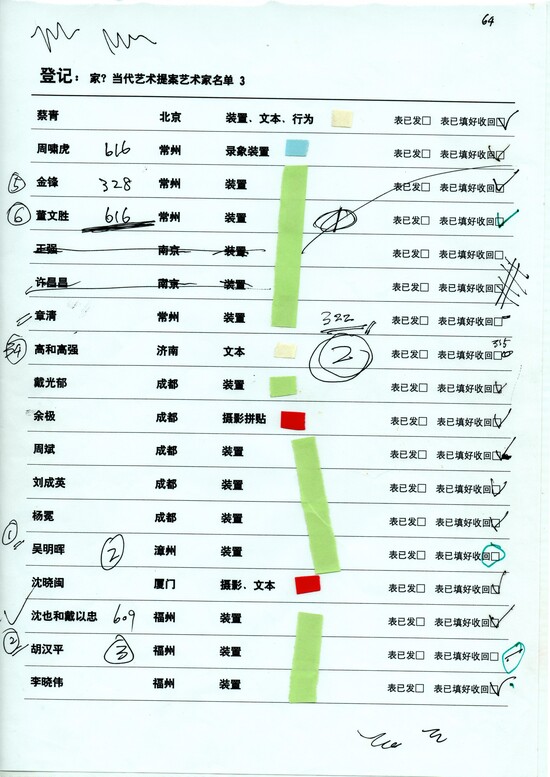 64
登记：家？当代艺术提案艺术家名单 3
蔡青 北京 装置、文本、行为 表已发□ 表已填好收回□
周啸虎 616 常州 录象装置 表已发□ 表已填好收回□
⑤ 金锋 328 常州 装置 表已发□ 表已填好收回□
⑥ 董文胜 616 常州 装置 ① 表已发□ 表已填好收回□
王强 南京 装置 表已发□ 表已填好收回□
许昌昌 南京 装置 表已发□ 表已填好收回□
章清 常州 装置 322 表已发□ 表已填好收回□
34 高和高强 济南 文本 ② 表已发□ 表已填好收回□ 315
戴光郁 成都 装置 表已发□ 表已填好收回□
余极 成都 摄影拼贴 表已发□ 表已填好收回□
周斌 成都 装置 表已发□ 表已填好收回□
刘成英 成都 装置 表已发□ 表已填好收回□
杨冕 成都 装置 表已发□ 表已填好收回□
① 吴明晖 ② 漳州 装置 表已发□ 表已填好收回□
沈晓闽 厦门 摄影、文本 表已发□ 表已填好收回□
沈也和戴以忠 609 福州 装置 表已发□ 表已填好收回□
② 胡汉平 ③ 福州 装置 表已发□ 表已填好收回□
李晓伟 福州 装置 表已发□ 表已填好收回□